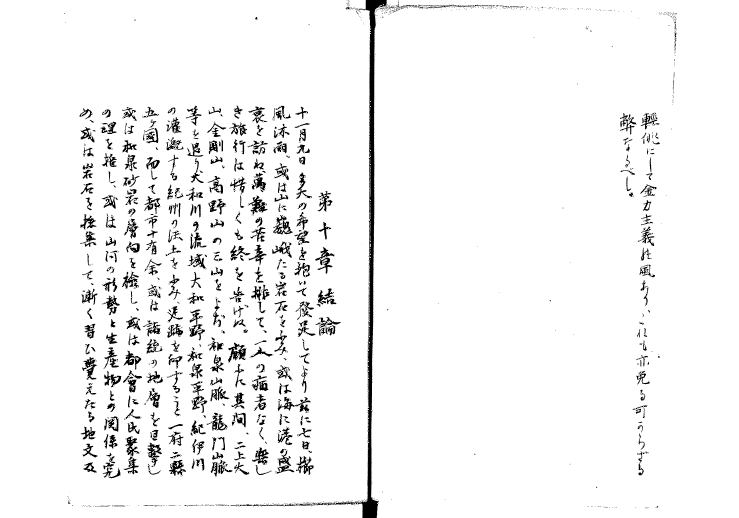 輕佻にして金力主義の風あり、これも亦免る可からざる
弊なるべし。
第十章 結論
十一月九日多大の希望を抱いて發足してより茲に七日、櫛
風沐雨、或は山に巍峨たる岩石をふみ、或は海に港の盛
衰を訪ね萬難の苦辛を排して、一人の病者なく、樂し
き旅行は惜しくも終を告げぬ。顧みれば其間、二上火
山、金剛山、高野山の三山をよぢ、和泉山脈、龍門山脈
等を過り大和川の流域大和平野、和泉平野、紀伊川
の灌漑する紀州の沃土をふみ、足跡を印すること一府二縣
五ヶ國、而して都市十有余、或は諸統の地層を目撃し
或は和泉砂岩の層向を檢し、或は都會に人民聚集
の理を推し、或は山河の形勢と生産物との関係を究
め、或は岩石を採集して、漸く習ひ覺えたる地文及